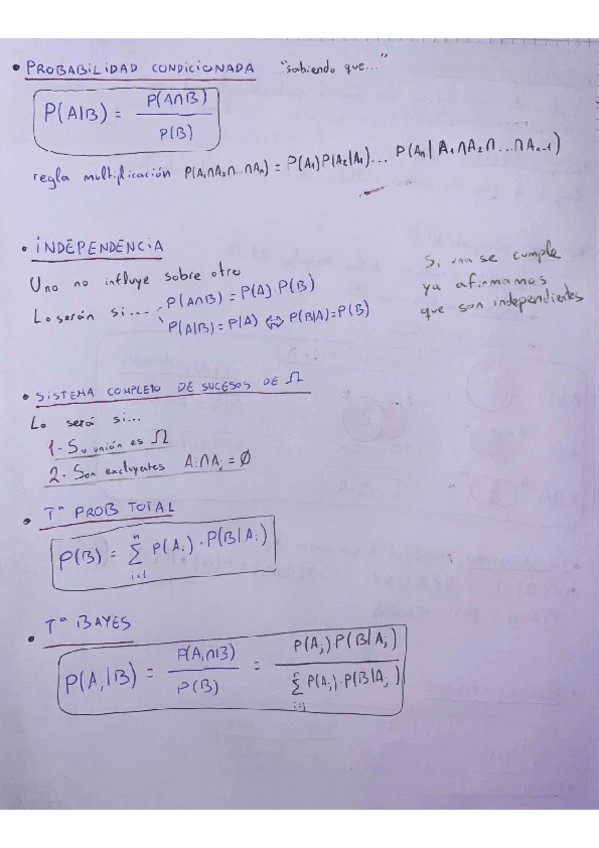 • PROBABILIDAD CONDICIONADA "sabiendo que..."
P(A|B) = P(A∩B) / P(B)
regla multiplicación P(A₁∩A₂∩...∩Aₙ) = P(A₁)P(A₂|A₁)... P(Aₙ|A₁∩A₂∩...∩Aₙ₋₁)
• INDEPENDENCIA
Uno no influye sobre otro
Lo serán si... P(A∩B) = P(A)·P(B)
P(A|B) = P(A) ⇔ P(B|A) = P(B)
Si una se cumple
ya afirmamos
que son independientes
• SISTEMA COMPLETO DE SUCESOS DE Ω
Lo será si...
1- Su unión es Ω
2- Son excluyentes Aᵢ∩Aⱼ = Ø
• Tª PROB TOTAL
P(B) = Σⁿᵢ₌₁ P(Aᵢ)·P(B|Aᵢ)
• Tª BAYES
P(Aᵢ|B) = P(Aᵢ∩B) / P(B) = P(Aᵢ)·P(B|Aᵢ) / Σⁿᵢ₌₁ P(Aᵢ)·P(B|Aᵢ)